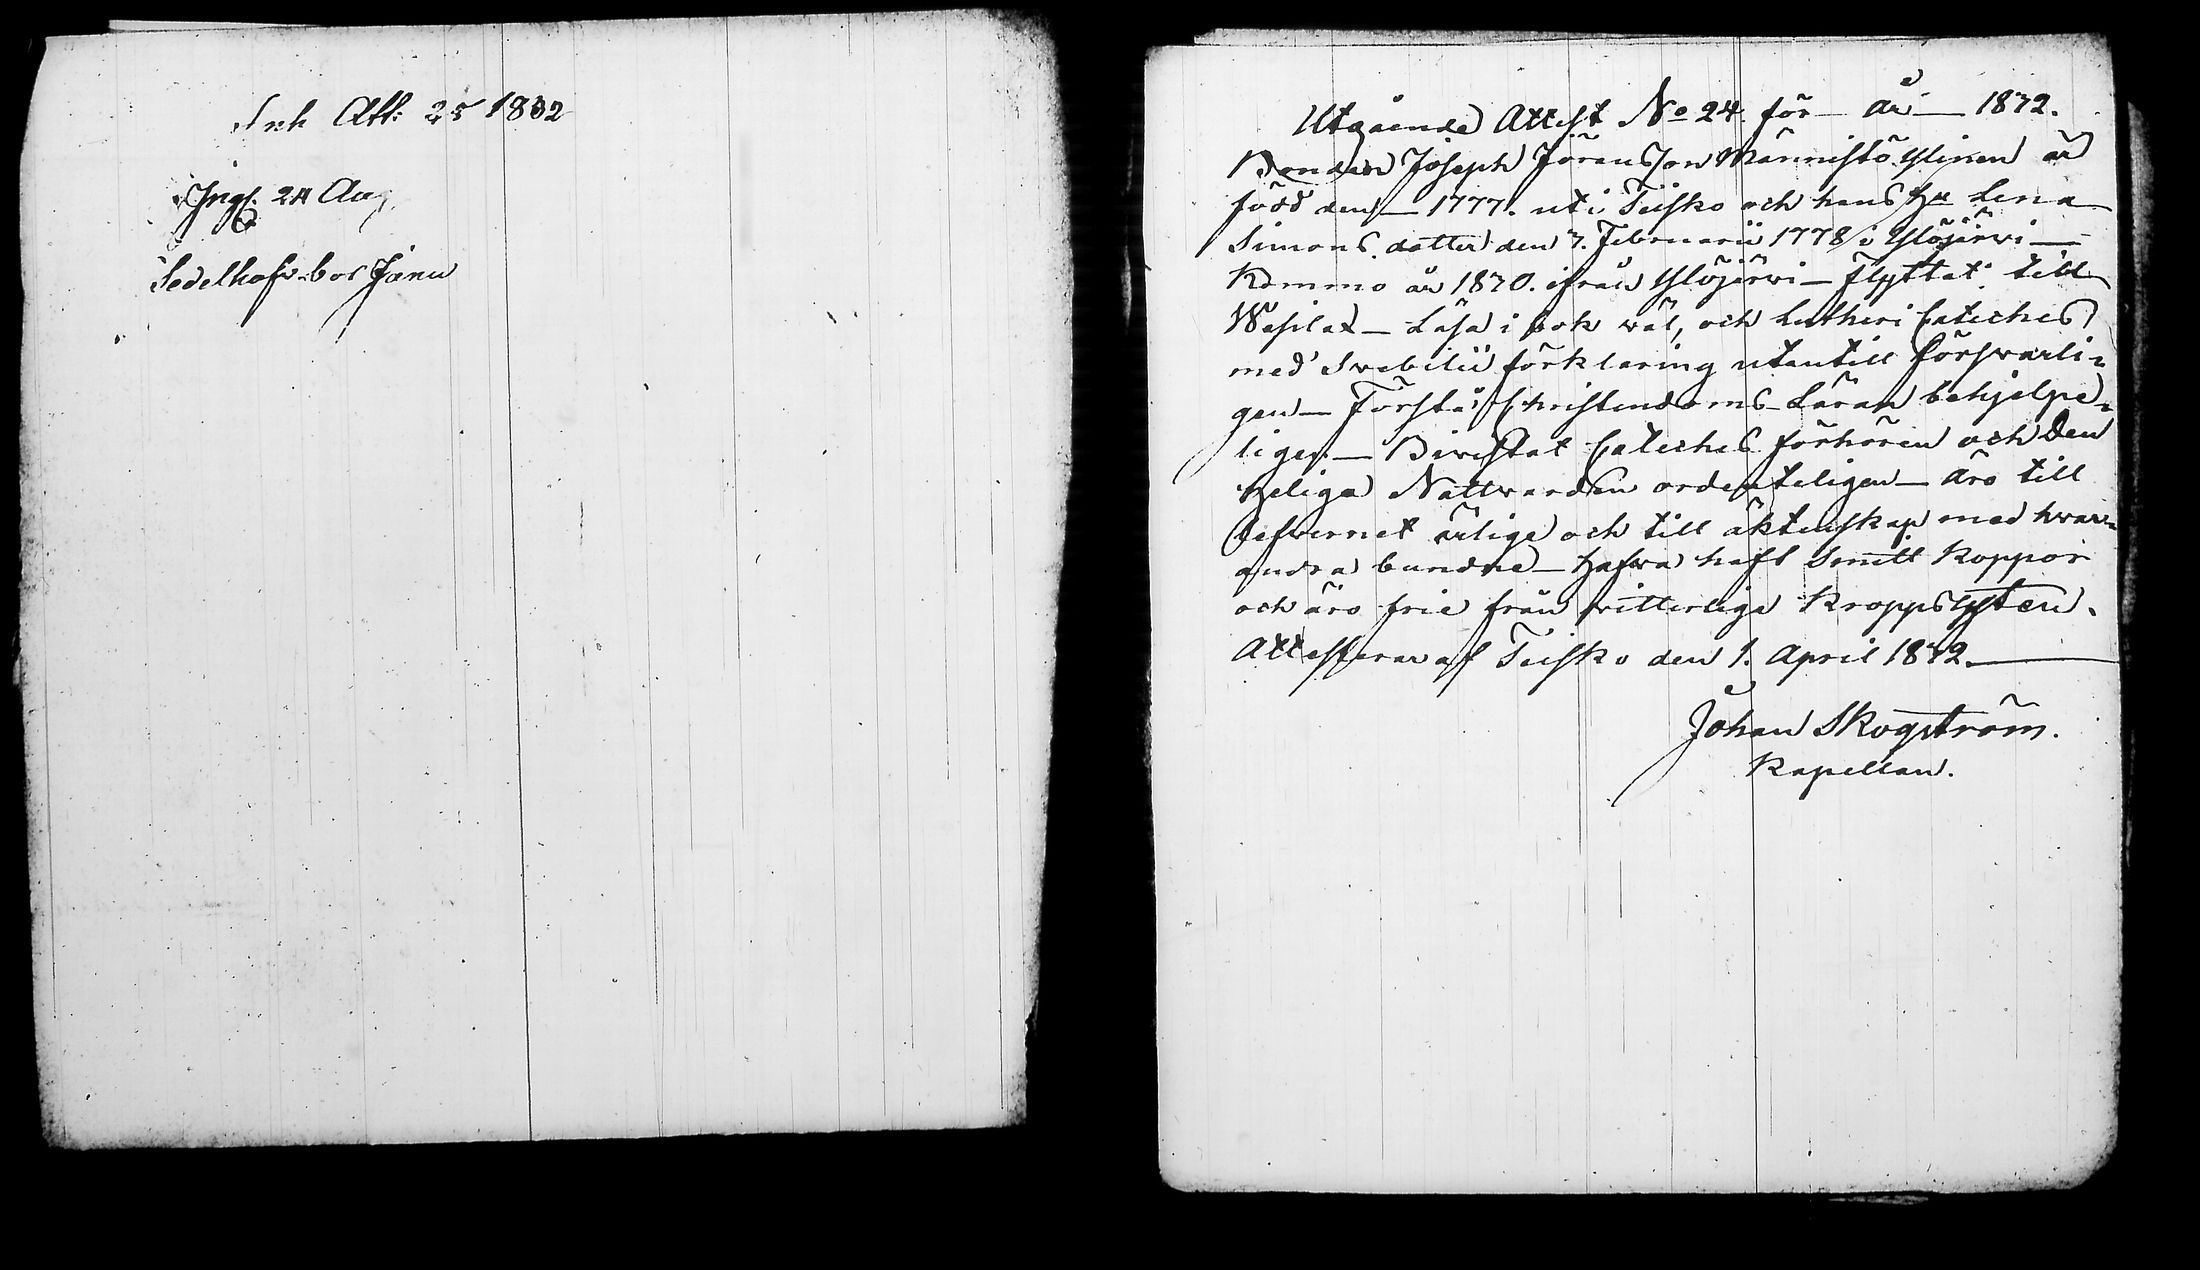 Ink Att: 25 1832
Ingf. 24 Aug
Sedelhafv. bor Jänu
Utgående Attest No 24 för — år — 1832.
Bonden Joseph Jöransson Männistö Ylinen är
född den — 1777. uti Teisko och hans Hu Lena
Simons dotter den 7. Februarii 1778 i Ylöjärvi —
Komma år 1830. ifrån Ylöjärvi — Flyttat till
Wesilax — Läsa i bok väl, och Lutheri Cateches
med Svebilii förklaring utantill försvarli=
gen — Förstå Christendoms Läran behjelpe=
ligen — Bivistat Cateches förhören och den
Heliga Nattvarden ordenteligen — äro till
lefvernet ärlige och till äktenskap med hvar=
andra bundne — Hafva haft Smitt Koppor
och äro frie från vitterlige Kroppslyten.
Attesterar af Teisko den 1. April 1832.
Johan Skogström.
Kapellan.